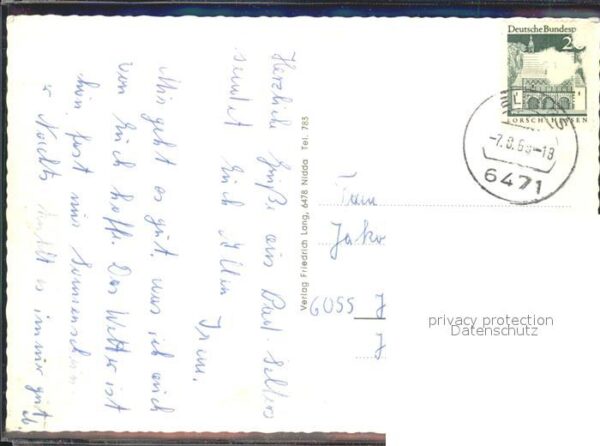 Herzliche Grüße aus Bad-Salters
sendet Euch
Irm.
Mir geht es gut, was ich auch
von Euch hoffe. Das Wetter ist
hier fast nur Sonnenschein
Nachts es immer gut
Verlag Friedrich Lang, 6478 Nidda Tel. 785
Deutsche Bundesp
20
LORSCH HESSEN
-7.8.69-18
6471
Fam
Jako
6055 J
J
privacy protection
Datenschutz